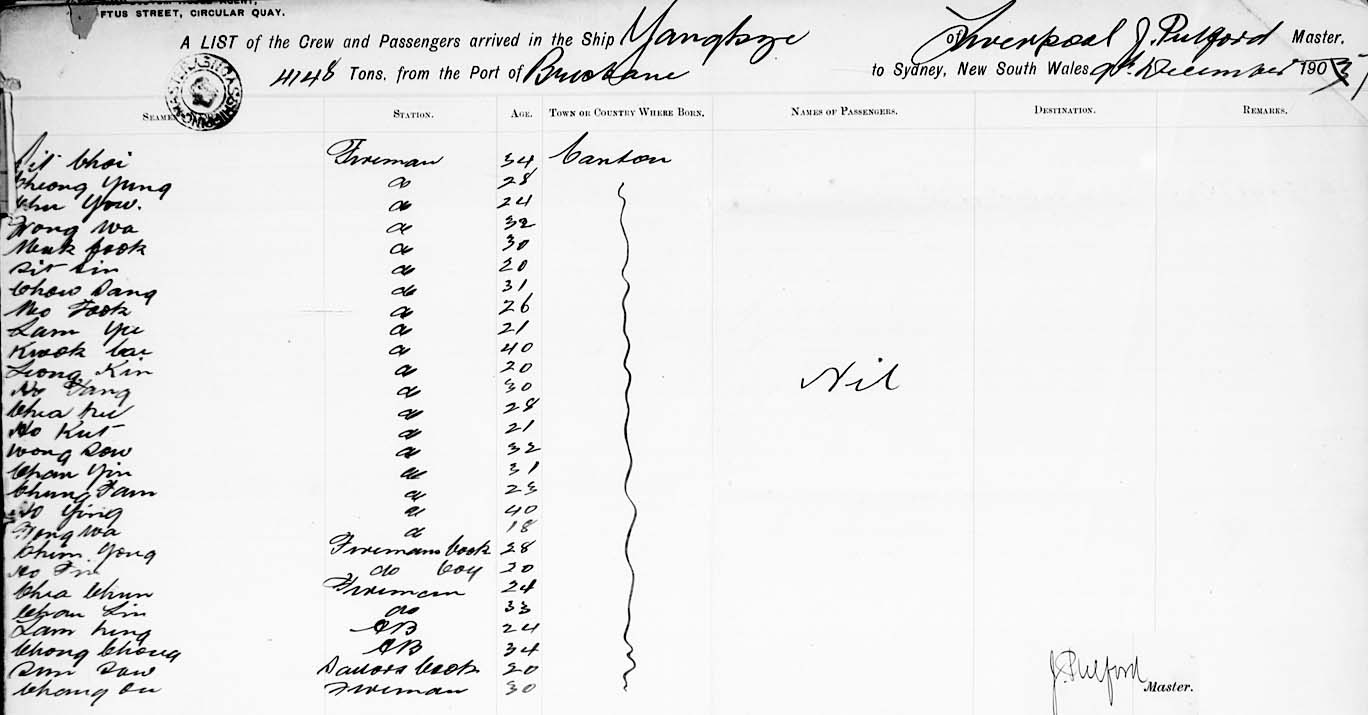 FTUS STREET, CIRCULAR QUAY.
A LIST of the Crew and Passengers arrived in the Ship Yangtsze of Liverpool J. Pulford Master.
4148 Tons. from the Port of Brisbane to Sydney, New South Wales 9th December 190
STATION. AGE. TOWN OR COUNTRY WHERE BORN. NAMES OF PASSENGERS. DESTINATION. REMARKS.
Sit Choi Fireman 34 Canton
Cheong Yung do 28
Chu Yow. do 24
Wong Wa do 32
Mak Fook do 30
Sit Sin do 20
Chow Sang do 31
Mo Fook do 26
Lam Yee do 21
Kwok Cai do 40
Leong Kin do 20 Nil
Ho Tang do 30
Chea do 28
Ho Kut do 21
Wong Sow do 32
Chan Yin do 31
Chung Tam do 23
Ho Ying do 40
Wa do 18
Chim Yong Firemans Cook 28
Ho do boy 20
Chea Chun Fireman 24
Chan Lin do 33
Lam King AB 24
Chong Chong AB 34
Sun Sow Sailors Cook 20
Chong Ou Fireman 30
J. Pulford Master.